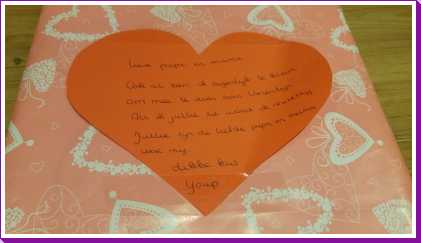 Lieve papa en mama
Ook al ben ik eigenlijk te klein
Om mee te doen aan Valentijn
Als ik jullie zie maakt de
Jullie zijn de liefste papa en mama
voor mij.
dikke kus
Youp